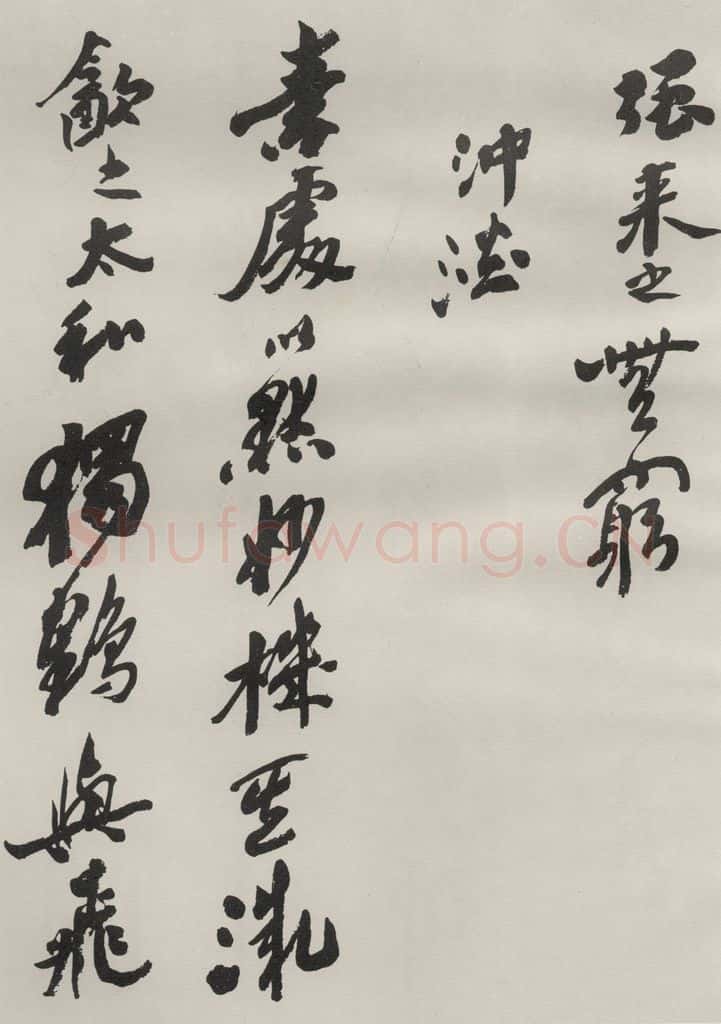 强来之無窮
沖澹
素處以默妙機其微
飲之太和獨鶴與飛
Shufawang.CN